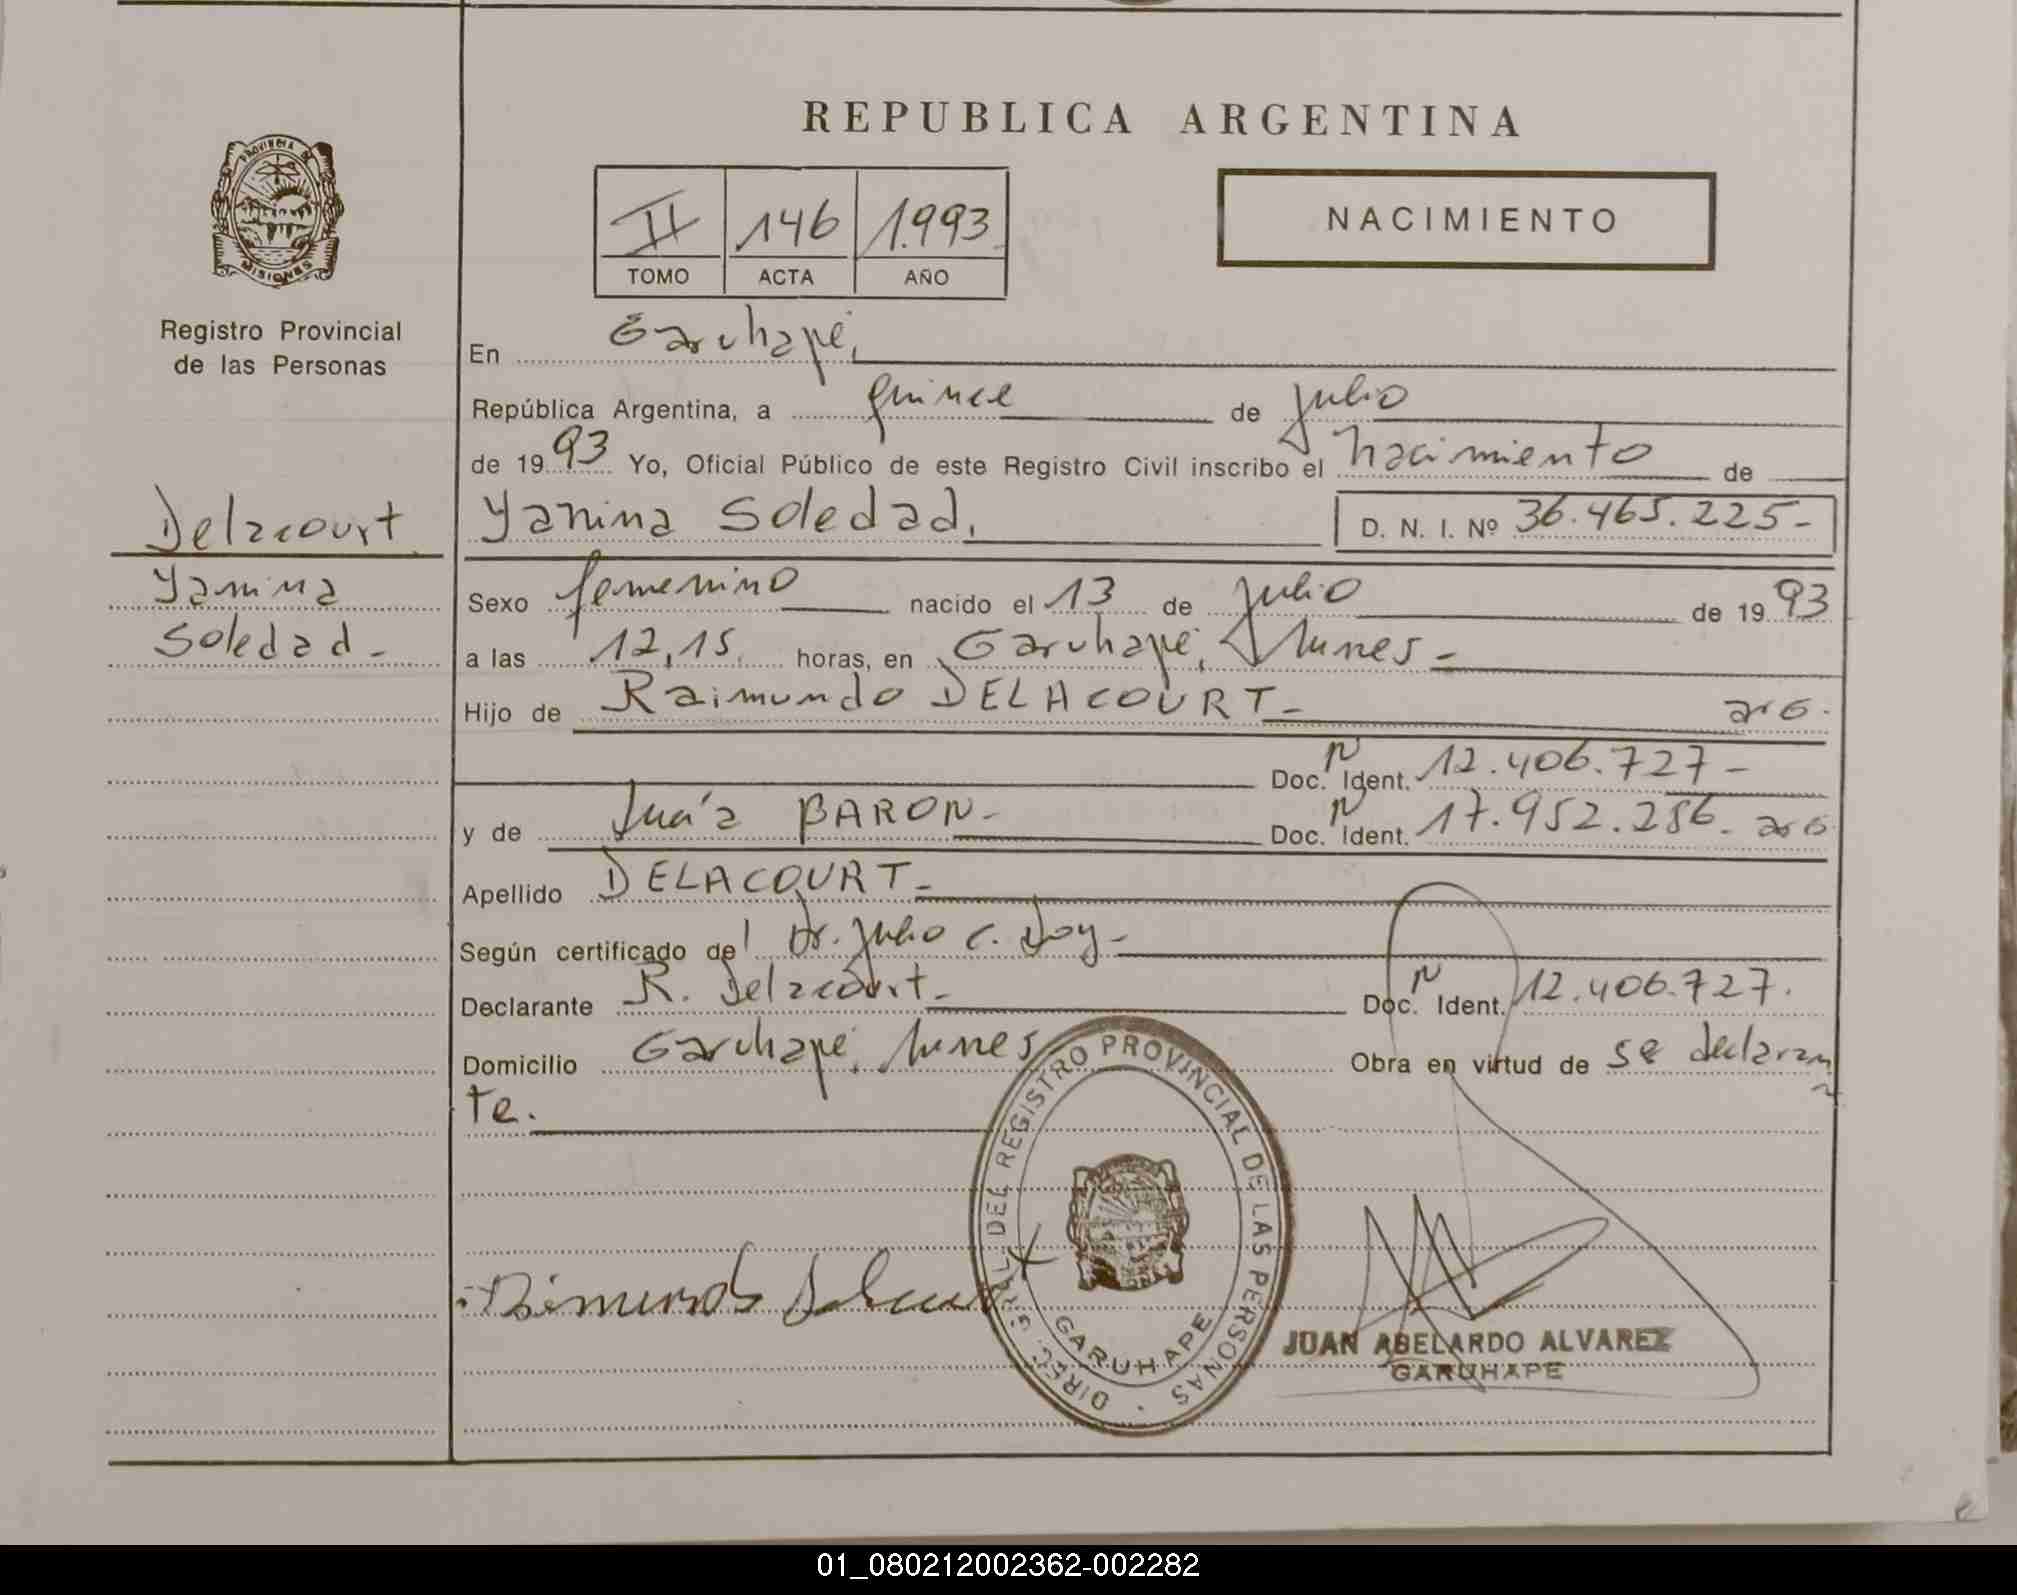 REPUBLICA ARGENTINA
PROVINCIA DE
MISIONES
Registro Provincial
de las Personas
II 146 1.993
TOMO ACTA AÑO
NACIMIENTO
En Garuhapé,
República Argentina, a quince de julio
de 1993 Yo, Oficial Público de este Registro Civil inscribo el nacimiento de
Yanina Soledad. D. N. I. Nº 36.465.225-
Delacourt
Yanina
Soledad-
Sexo femenino nacido el 13 de julio de 1993
a las 12,15 horas, en Garuhapé,
Hijo de Raimundo DELACOURT- arg.
Doc. N Ident. 12.406.727-
y de BARON- Doc. N Ident. 17.952.256- arg
Apellido DELACOURT-
Según certificado del Dr. Julio C.
Declarante R. Delacourt- Doc. N Ident. 12.406.727.
Domicilio Garuhapé, Obra en virtud de se declaran
te.
DIREC. GRAL. DEL REGISTRO PROVINCIAL DE LAS PERSONAS
GARUHAPE
JUAN ABELARDO ALVAREZ
GARUHAPE
01_080212002362-002282